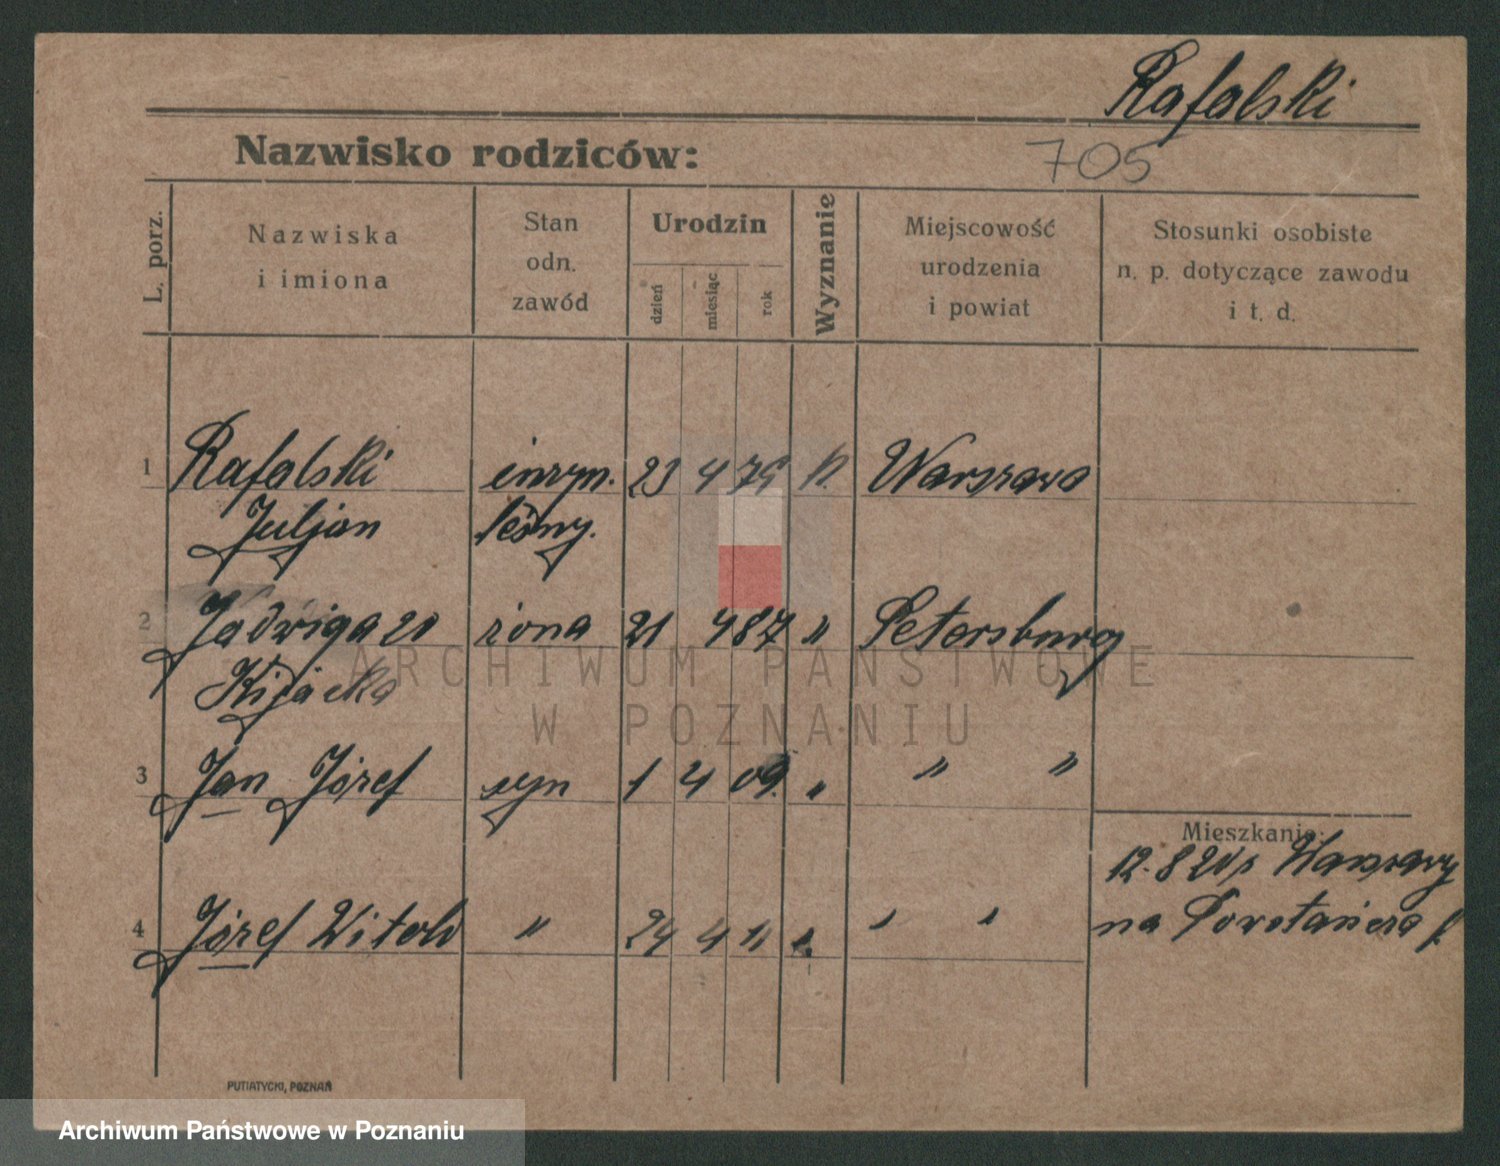 Rafalski
Nazwisko rodziców:
705
L. porz.
Nazwiska
i imiona
Stan
odn.
zawód
Urodzin
dzień
miesiąc
rok
Wyznanie
Miejscowość
urodzenia
i powiat
Stosunki osobiste
n. p. dotyczące zawodu
i t. d.
1 Rafalski inżyn. 23 4 75 k. Warszawa
Juljan leśny.
2 Jadwiga zd żona 21 4 87 " Petersburg
Kijacka
3 Jan Józef syn 1 4 09. " " "
Mieszkanie:
12.8 21 z Warszawy
4 Józef Witold " 24 4 11 " " "
na
ARCHIWUM PAŃSTWOWE
W POZNANIU
PUTIATYCKI, POZNAŃ
Archiwum Państwowe w Poznaniu